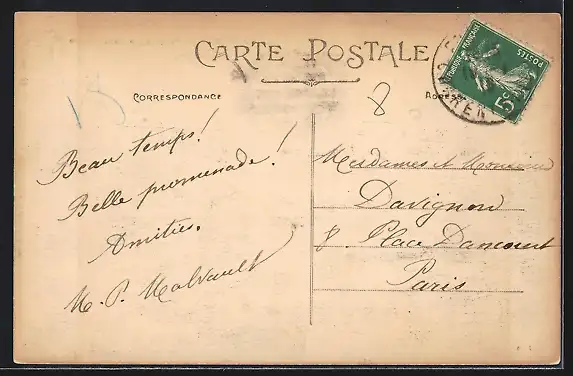 CARTE POSTALE
CORRESPONDANCE
8
Beau temps!
Belle promenade!
Amitiés.
M. P. Malvault
Mesdames et Monsieur
Davignon
8 Place Dancourt
Paris
RÉPUBLIQUE FRANÇAISE
POSTES
5c